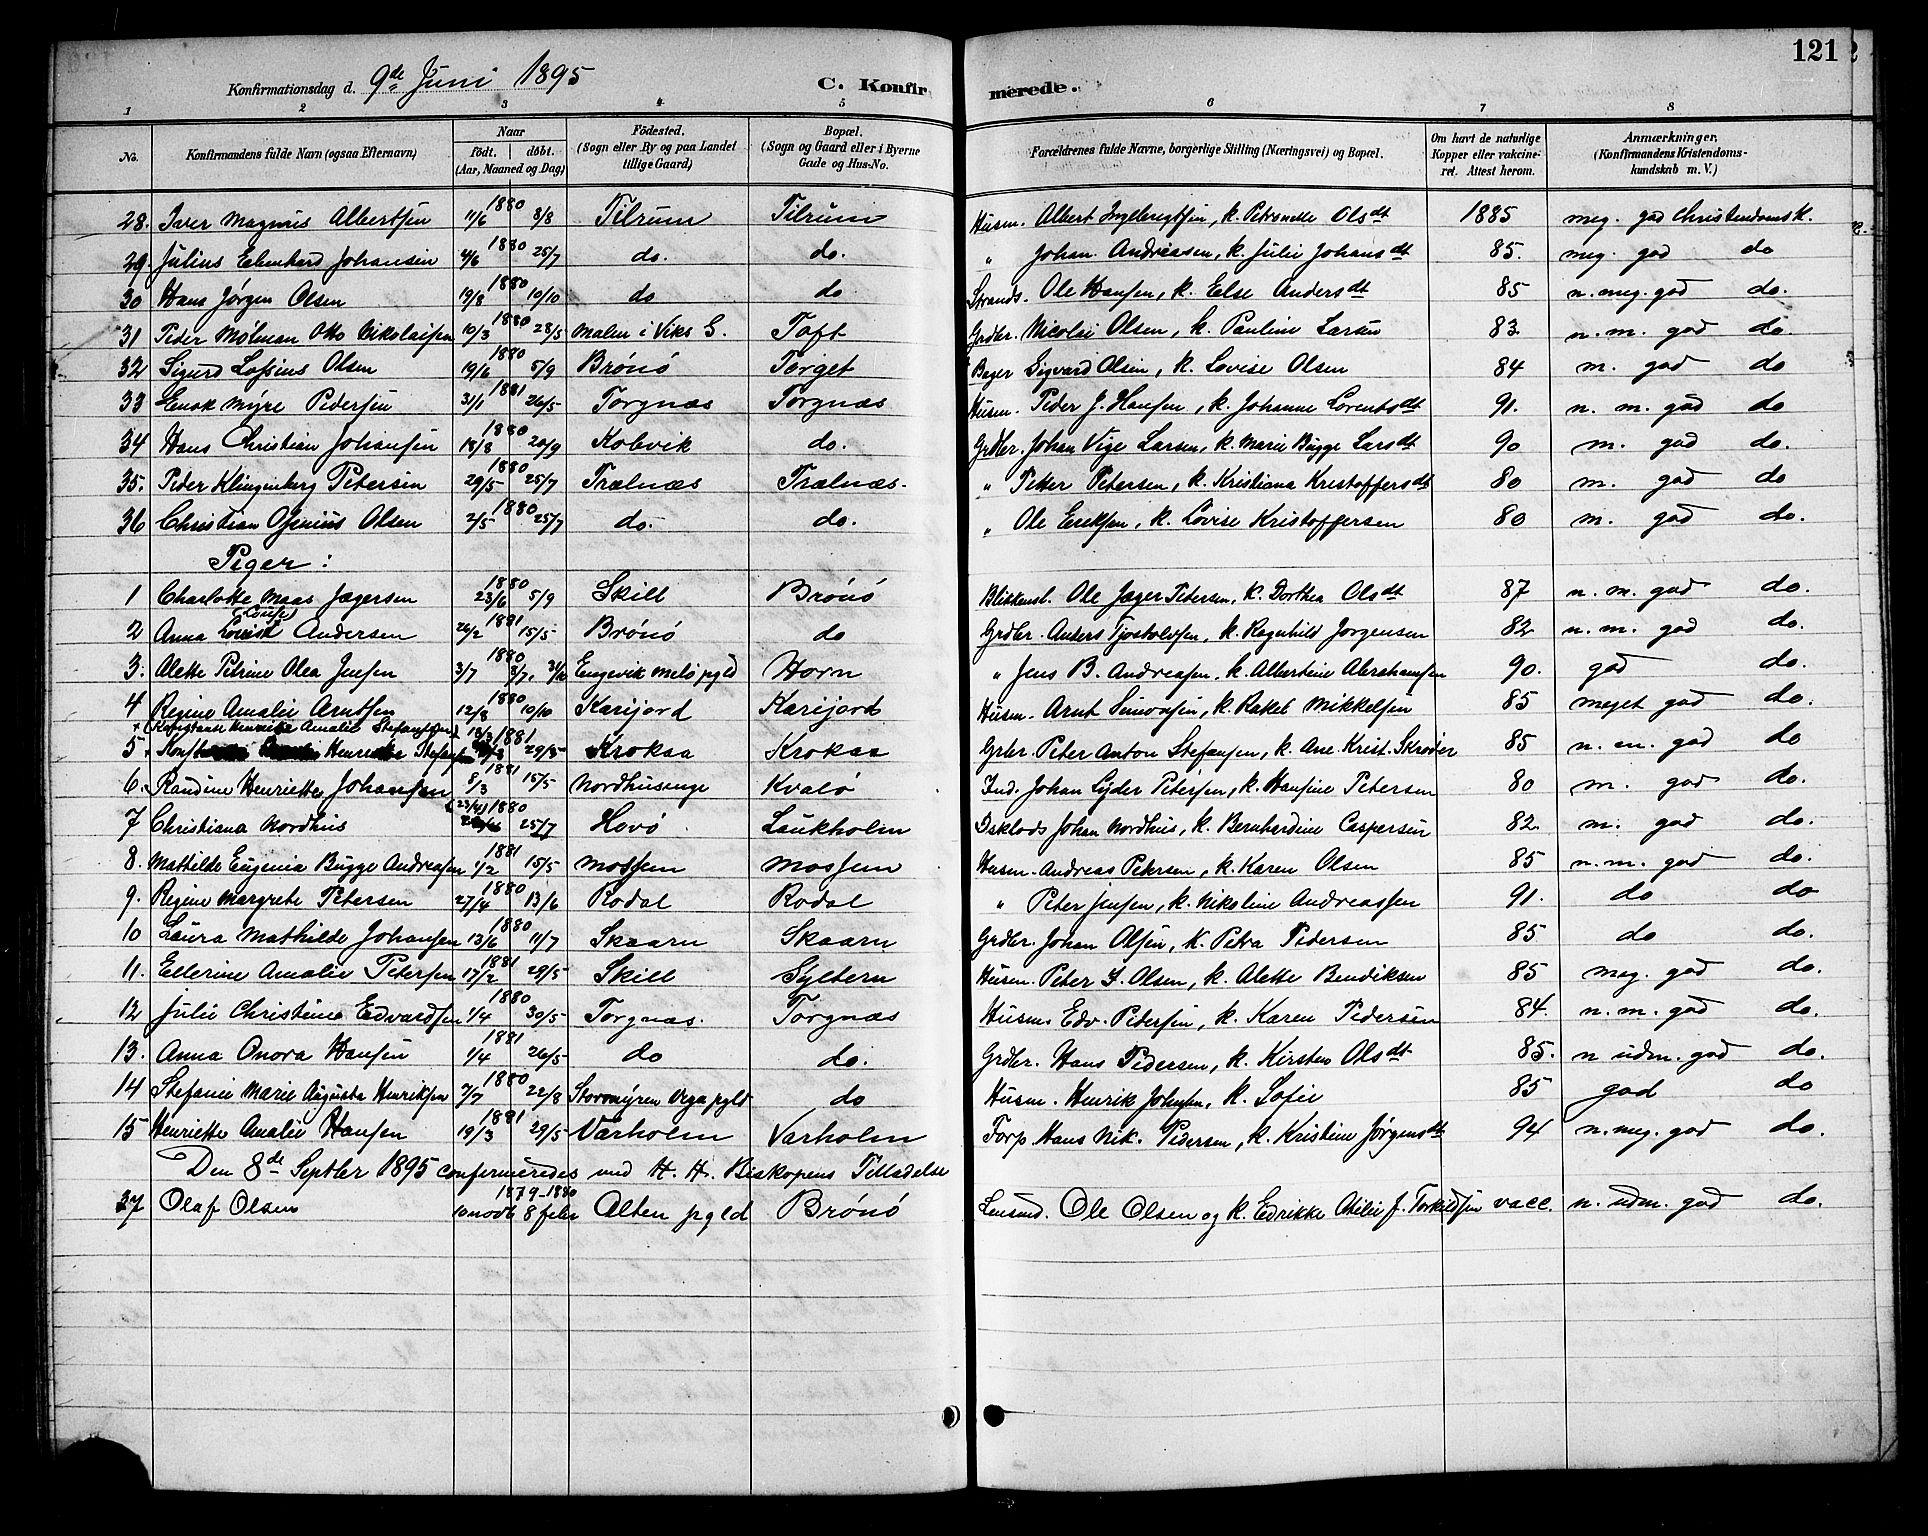 121
Konfirmationsdag d. 9de Juni 1895 C. Konfirmerede.
1 2 3 4 5 6 7 8
No. Konfirmandens fulde Navn (ogsaa Efternavn) Naar Født. døbt. (Aar, Maaned og Dag) Fødested. (Sogn eller By og paa Landet tillige Gaard) Bopæl. (Sogn og Gaard eller i Byerne Gade og Hus-No. Forældrenes fulde Navne, borgerlige Stilling (Næringsvei) og Bopæl. Om havt de naturlige Kopper eller vakcineret. Attest herom. Anmærkninger, (Konfirmandens Kristendomskundskab m. V.)
28. Iver Magnus Albertsen 11/6 1880 8/8 Tilrum Tilrum Husm. Albert Ingebrigtsen, k. Petronelle Olsdt 1885 meg. god Christendomsk.
29. Julius Edenhard Johansen 4/6 1880 25/7 do. do. " Johan Andreasen, k. Julie Johansdt 85. meg. god do
30 Hans Jørgen Olsen 19/8 1880 10/10 do do Strands. Ole Hansen, k. Else Andersdt 85 n. meg. god do.
31 Peder Mølman Otto Nikolaisen 10/3 1880 28/5 Malm i Viks S. Toft Grdbr. Nicolai Olsen, k. Pauline Larsen 83. n. m. god do.
32 Sigurd Lossius Olsen 19/6 1880 5/9 Brønø Torget Bager Sigvard Olsen, k. Lovise Olsen 84 m. god do
33 Enok Myre Pedersen 31/1 1881 26/5 Torgnæs Torgnæs Husm. Peder J. Hansen, k. Johanne Lorentsdt 91. n. m. god do
34 Hans Christian Johansen 18/8 1880 20/9 Kobvik do. Grdbr. Johan Vige Larsen, k. Marie Bugge Larsdt 90 m. god do.
35. Peder Klingenberg Petersen 29/5 1880 25/7 Trælnæs Trælnæs. " Petter Petersen, k. Kristiana Kristoffersdt 80 m. god do
36 Christian Osenius Olsen 2/5 1880 25/7 do. do. " Ole Eriksen, k. Lovise Kristoffersen 80 m. god do.
Piger:
1 Charlotte Maas Jægersen 23/6 1880 5/9 Skill Brønø Blikkensl. Ole Jæger Pedersen, k. Dorthea Olsdt 87 n. m. god do.
2 Anna Andersen 26/2 1881 15/5 Brønø do Grdbr. Anders Tjostolvsen, k. Ragnhild Jørgensen 82 n. m. god do.
3. Alette Petrine Olea Jensen 3/7 1880 Engevik Melø pgld Horn " Jens B. Andreasen, k. Albertine Abrahamsen 90. god do.
4 Regine Amalie Arntsen 12/8 1880 10/10 Karijord Karijord Husm. Arnt Simonsen, k. Rakel Mikkelsen 85 meget god do.
(Konstanse Henrikke Amalie Stefansen)
5 Henrikke Stefansen 1881 29/5 Krokaa Krokaa Grbr. Peter Anton Stefansen, k. Ane Krist. Skrøder 85 n. m. god do
6. Randine Henriette Johansen 8/3 1881 15/5 Nordhusenge Kvalø Ind. Johan Lyder Petersen, k. Hansine Petersen 80 m. god do.
7 Christiana Nordhus (23/4) 1880 25/7 Hovø Laukholm Dsklods Johan Nordhus, k. Bernhardine Caspersen 82. m. god do.
8. Mathilde Eugenia Bugge Andreasen 1/2 1881 15/5 Mossem Mossem Husm. Andreas Petersen, k. Karen Olsen 85 n. m. god do.
9. Regine Margrete Petersen 27/4 1880 13/6 Rodal Rodal " Peter Jensen, k. Nikoline Andreassen 91. do do
10 Laura Mathilde Johansen 13/6 1880 11/7 Skaarn Skaarn Grdbr. Johan Olsen, k. Petra Pedersen 85 do do.
11. Ellerine Amalie Petersen 17/2 1881 29/5 Skill Syltern Husm. Peter I. Olsen, k. Alette Bendiksen 85 meg. god do.
12 Julie Christine Edvardsen 1/4 1880 30/5 Torgnæs. Torgnæs Husm. Edv. Pedersen, k. Karen Pedersen 84. n. m. god do.
13. Anna Onora Hansen 1/4 1881 26/5 do do. Grdbr. Hans Pedersen, k. Kirsten Olsdt 85. n udm. god do.
14 Stefanie Marie Augusta Henriksen 7/7 1880 22/8 Stormyren Vega pgld do Husm. Henrik Johnsen, k. Sofie 85 god do
15 Henriette Amalie Hansen 19/3 1881 29/5 Varholm Varholm Torp. Hans Nik. Pedersen, k. Kristine Jørgensdt 94 n. meg. god do.
Den 8de Septbr 1895 confirmeredes med H. H. Biskopens Tilladelse
37 Olaf Olsen 10 novb 1879-1880 8 febr Alten pgld Brønø Lensmd. Ole Olsen og k. Edrikke Otilie J. Torkildsen vacc. n. udm. god do.